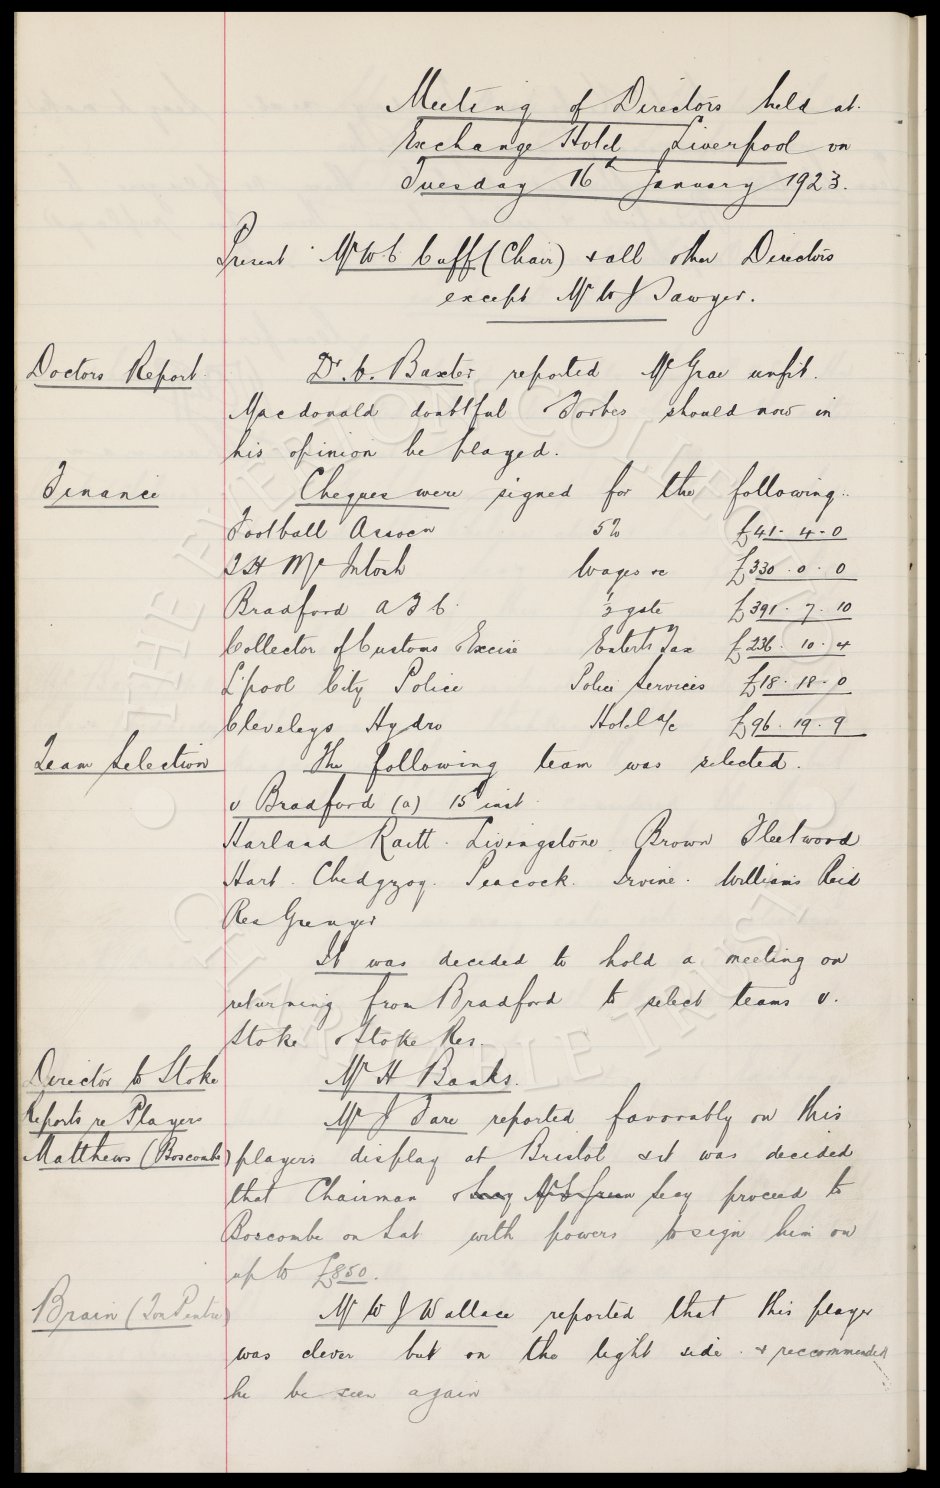 Meeting of Directors held at
Exchange Hotel Liverpool on
Tuesday 16th January 1923.
Present Mr W.C. Cuff (Chair) & all other Directors
except Mr W J Sawyer.
Doctors Report Dr. C. Baxter reported McGrae unfit.
Macdonald doubtful Forbes should now in
his opinion be played.
Finance Cheques were signed for the following.
Football Assocn 5% £41. 4. 0
T H McIntosh Wages &c £330. 0. 0
Bradford A F C. ½ gate £391. 7. 10
Collector of Customs & Excise Enterts Tax £236. 10. 4
L'pool City Police Police Services £18. 18. 0
Cleveleys Hydro Hotel a/c £96. 19. 9
Team Selection The following team was selected.
v Bradford (a) 15th inst.
Harland Raitt. Livingstone. Brown Fleetwood
Hart. Chedgzoy. Peacock. Irvine. Williams Reid
Res Grenyer
It was decided to hold a meeting on
returning from Bradford to select teams v.
Stoke & Stoke Res.
Director to Stoke Mr H Banks.
Reports re Players Mr J Fare reported favorably on this
Matthews (Boscombe) players display at Bristol & it was decided
that Chairman & Secy proceed to
Boscombe on Sat with powers to sign him on
up to £850.
Brain (Ton Pentre) Mr W J Wallace reported that this player
was clever but on the light side. & reccommended
he be seen again
THE EVERTON COLLECTION
CHARITABLE TRUST